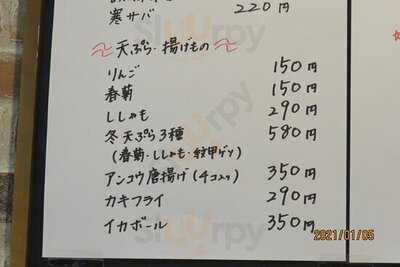 寒サバ 220円
天ぷら・揚げもの
りんご 150円
春菊 150円
ししゃも 290円
冬天ぷら3種 580円
(春菊・ししゃも・紋甲ゲソ)
アンコウ唐揚げ(4コ入り) 350円
カキフライ 290円
イカボール 350円
2021/01/05
Sluurpy
Sluurpy